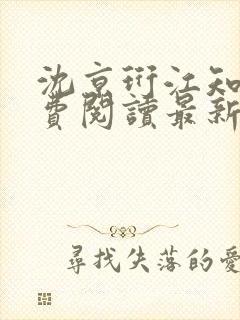 沈京衍江知
費閱讀最新
尋找失落的愛